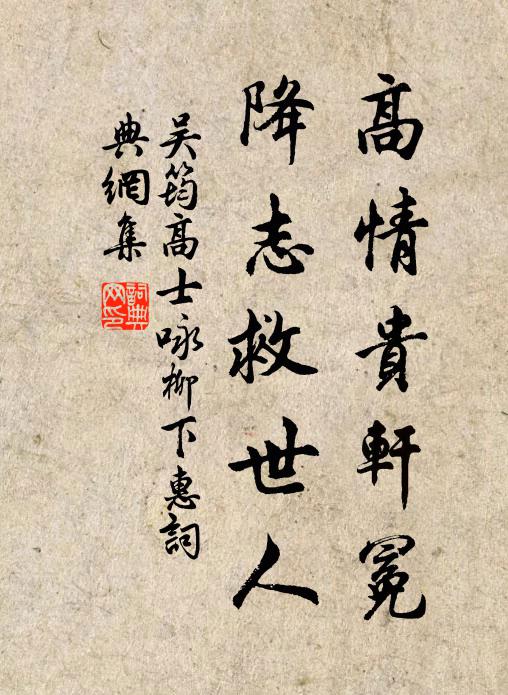 高情貴軒冕
降志救世人
吴筠高士咏柳下惠詞
典網集
詞典
网印